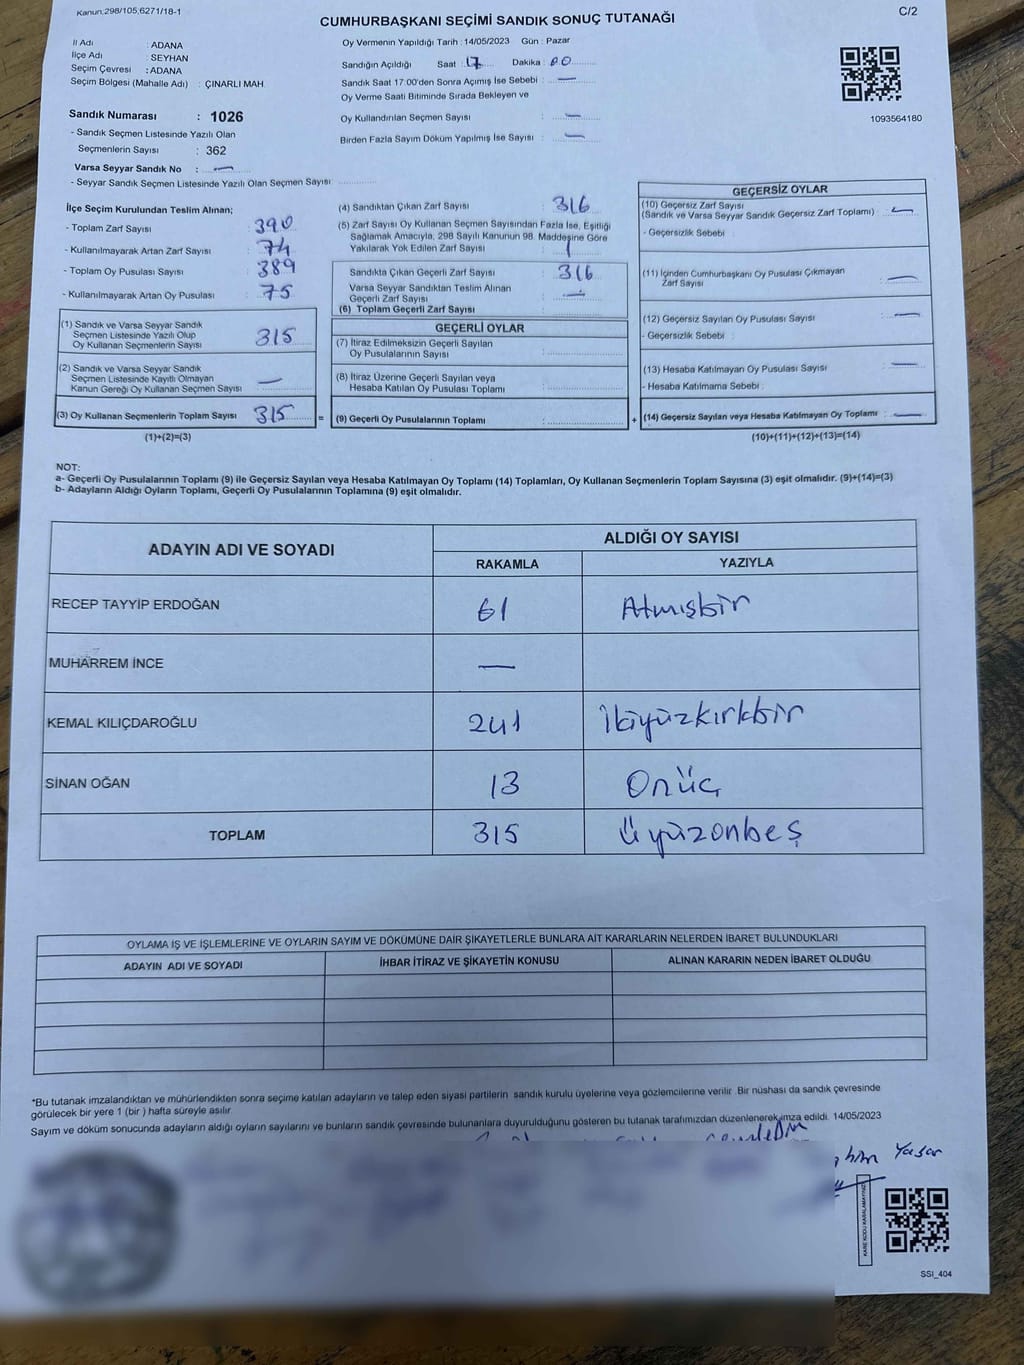 Kanun:298/105,6271/18-1
C/2
CUMHURBAŞKANI SEÇİMİ SANDIK SONUÇ TUTANAĞI
İl Adı : ADANA
İlçe Adı : SEYHAN
Seçim Çevresi : ADANA
Seçim Bölgesi (Mahalle Adı) : ÇINARLI MAH
Oy Vermenin Yapıldığı Tarih : 14/05/2023 Gün : Pazar
Sandığın Açıldığı Saat : 17 Dakika : 00
Sandık Saat 17.00'den Sonra Açımış İse Sebebi : —
Oy Verme Saati Bitiminde Sırada Bekleyen ve
Oy Kullandırılan Seçmen Sayısı : —
Birden Fazla Sayım Döküm Yapılmış İse Sayısı : —
1093564180
Sandık Numarası : 1026
- Sandık Seçmen Listesinde Yazılı Olan
Seçmenlerin Sayısı : 362
Varsa Seyyar Sandık No : —
- Seyyar Sandık Seçmen Listesinde Yazılı Olan Seçmen Sayısı:
İlçe Seçim Kurulundan Teslim Alınan;
- Toplam Zarf Sayısı : 390
- Kullanılmayarak Artan Zarf Sayısı : 74
- Toplam Oy Pusulası Sayısı : 389
- Kullanılmayarak Artan Oy Pusulası : 75
(1) Sandık ve Varsa Seyyar Sandık
Seçmen Listesinde Yazılı Olup
Oy Kullanan Seçmenlerin Sayısı : 315
(2) Sandık ve Varsa Seyyar Sandık
Seçmen Listesinde Kayıtlı Olmayan
Kanun Gereği Oy Kullanan Seçmen Sayısı : —
(3) Oy Kullanan Seçmenlerin Toplam Sayısı : 315 =
(1)+(2)=(3)
(4) Sandıktan Çıkan Zarf Sayısı : 316
(5) Zarf Sayısı Oy Kullanan Seçmen Sayısından Fazla İse, Eşitliği
Sağlamak Amacıyla, 298 Sayılı Kanunun 98. Maddesine Göre
Yakılarak Yok Edilen Zarf Sayısı : 1
Sandıkta Çıkan Geçerli Zarf Sayısı : 316
Varsa Seyyar Sandıktan Teslim Alınan
Geçerli Zarf Sayısı : —
(6) Toplam Geçerli Zarf Sayısı :
GEÇERLİ OYLAR
(7) İtiraz Edilmeksizin Geçerli Sayılan
Oy Pusulalarının Sayısı :
(8) İtiraz Üzerine Geçerli Sayılan veya
Hesaba Katılan Oy Pusulaları Toplamı :
(9) Geçerli Oy Pusulalarının Toplamı : +
GEÇERSİZ OYLAR
(10) Geçersiz Zarf Sayısı
(Sandık ve Varsa Seyyar Sandık Geçersiz Zarf Toplamı) : —
- Geçersizlik Sebebi :
(11) İçinden Cumhurbaşkanı Oy Pusulası Çıkmayan
Zarf Sayısı : —
(12) Geçersiz Sayılan Oy Pusulası Sayısı : —
- Geçersizlik Sebebi :
(13) Hesaba Katılmayan Oy Pusulası Sayısı : —
- Hesaba Katılmama Sebebi :
(14) Geçersiz Sayılan veya Hesaba Katılmayan Oy Toplamı : —
(10)+(11)+(12)+(13)=(14)
NOT:
a- Geçerli Oy Pusulalarının Toplamı (9) ile Geçersiz Sayılan veya Hesaba Katılmayan Oy Toplamı (14) Toplamları, Oy Kullanan Seçmenlerin Toplam Sayısına (3) eşit olmalıdır. (9)+(14)=(3)
b- Adayların Aldığı Oyların Toplamı, Geçerli Oy Pusulalarının Toplamına (9) eşit olmalıdır.
ADAYIN ADI VE SOYADI ALDIĞI OY SAYISI
RAKAMLA YAZIYLA
RECEP TAYYİP ERDOĞAN 61 Atmışbir
MUHARREM İNCE —
KEMAL KILIÇDAROĞLU 241 İkiyüzkırkbir
SİNAN OĞAN 13 Onüç
TOPLAM 315 Üyüzonbeş
OYLAMA İŞ VE İŞLEMLERİNE VE OYLARIN SAYIM VE DÖKÜMÜNE DAİR ŞİKAYETLERLE BUNLARA AİT KARARLARIN NELERDEN İBARET BULUNDUKLARI
ADAYIN ADI VE SOYADI İHBAR İTİRAZ VE ŞİKAYETİN KONUSU ALINAN KARARIN NEDEN İBARET OLDUĞU
*Bu tutanak imzalandıktan ve mühürlendikten sonra seçime katılan adayların ve talep eden siyasi partilerin sandık kurulu üyelerine veya gözlemcilerine verilir. Bir nüshası da sandık çevresinde
görülecek bir yere 1 (bir ) hafta süreyle asılır.
Sayım ve döküm sonucunda adayların aldığı oyların sayılarını ve bunların sandık çevresinde bulunanlara duyurulduğunu gösteren bu tutanak tarafımızdan düzenlenerek imza edildi. 14/05/2023
Yaşar
KARE KODU KARALAMAYINIZ
SSI_404